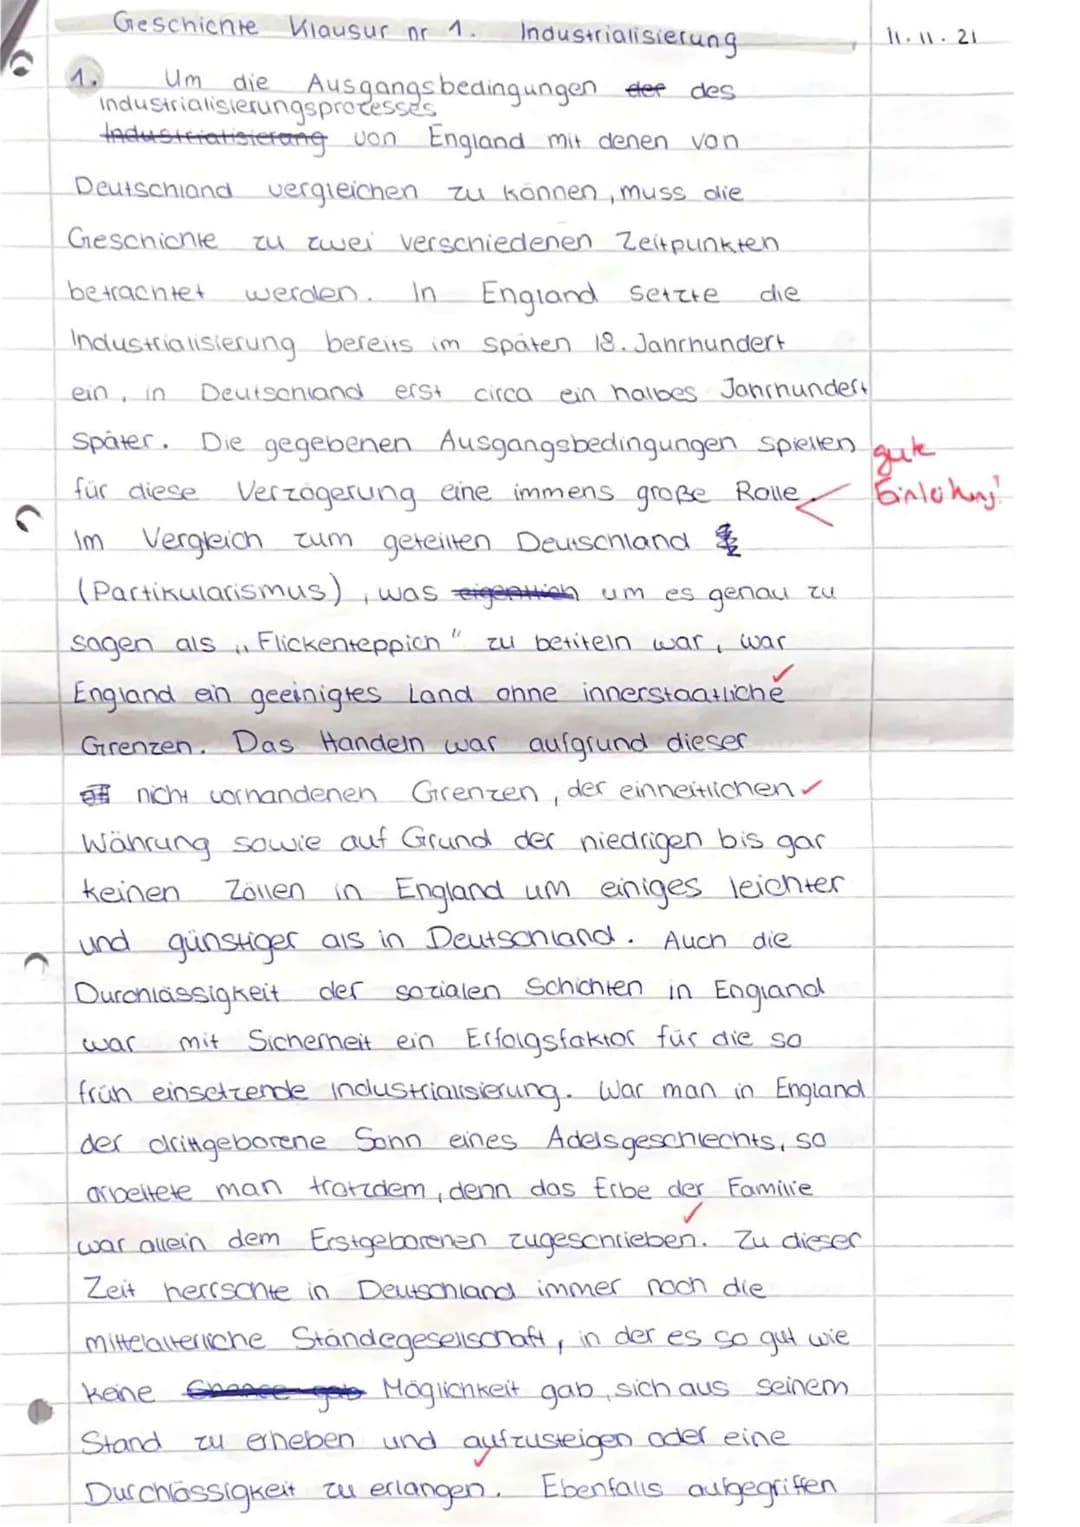 Geschichte Klausur nr 1. Industrialisierung 11.11.21
1. Um die Ausgangsbedingungen der des
Industrialisierungsprozesses
Industrialisierung von England mit denen von
Deutschland vergleichen zu können, muss die
Geschichte zu zwei verschiedenen Zeitpunkten
betrachtet werden. In England setzte die
Industrialisierung bereits im späten 18. Jahrhundert
ein, in Deutschland erst circa ein halbes Jahrhundert
später. Die gegebenen Ausgangsbedingungen spielten
für diese Verzögerung eine immens große Rolle.
gute
Einleitung!
Im Vergleich zum geteilten Deutschland
(Partikularismus), was eigentlich um es genau zu
sagen als „Flickenteppich" zu betiteln war, war
England ein geeinigtes Land ohne innerstaatliche
Grenzen. Das Handeln war aufgrund dieser
nicht vorhandenen Grenzen, der einheitlichen
Währung sowie auf Grund der niedrigen bis gar
keinen Zöllen in England um einiges leichter
und günstiger als in Deutschland. Auch die
Durchlässigkeit der sozialen Schichten in England
war mit Sicherheit ein Erfolgsfaktor für die so
früh einsetzende Industrialisierung. War man in England
der drittgeborene Sohn eines Adelsgeschlechts, so
arbeitete man trotzdem, denn das Erbe der Familie
war allein dem Erstgeborenen zugeschrieben. Zu dieser
Zeit herrschte in Deutschland immer noch die
mittelalterliche Ständegesellschaft, in der es so gut wie
keine Chance gab Möglichkeit gab, sich aus seinem
Stand zu erheben und aufzusteigen oder eine
Durchlässigkeit zu erlangen. Ebenfalls aufgegriffen